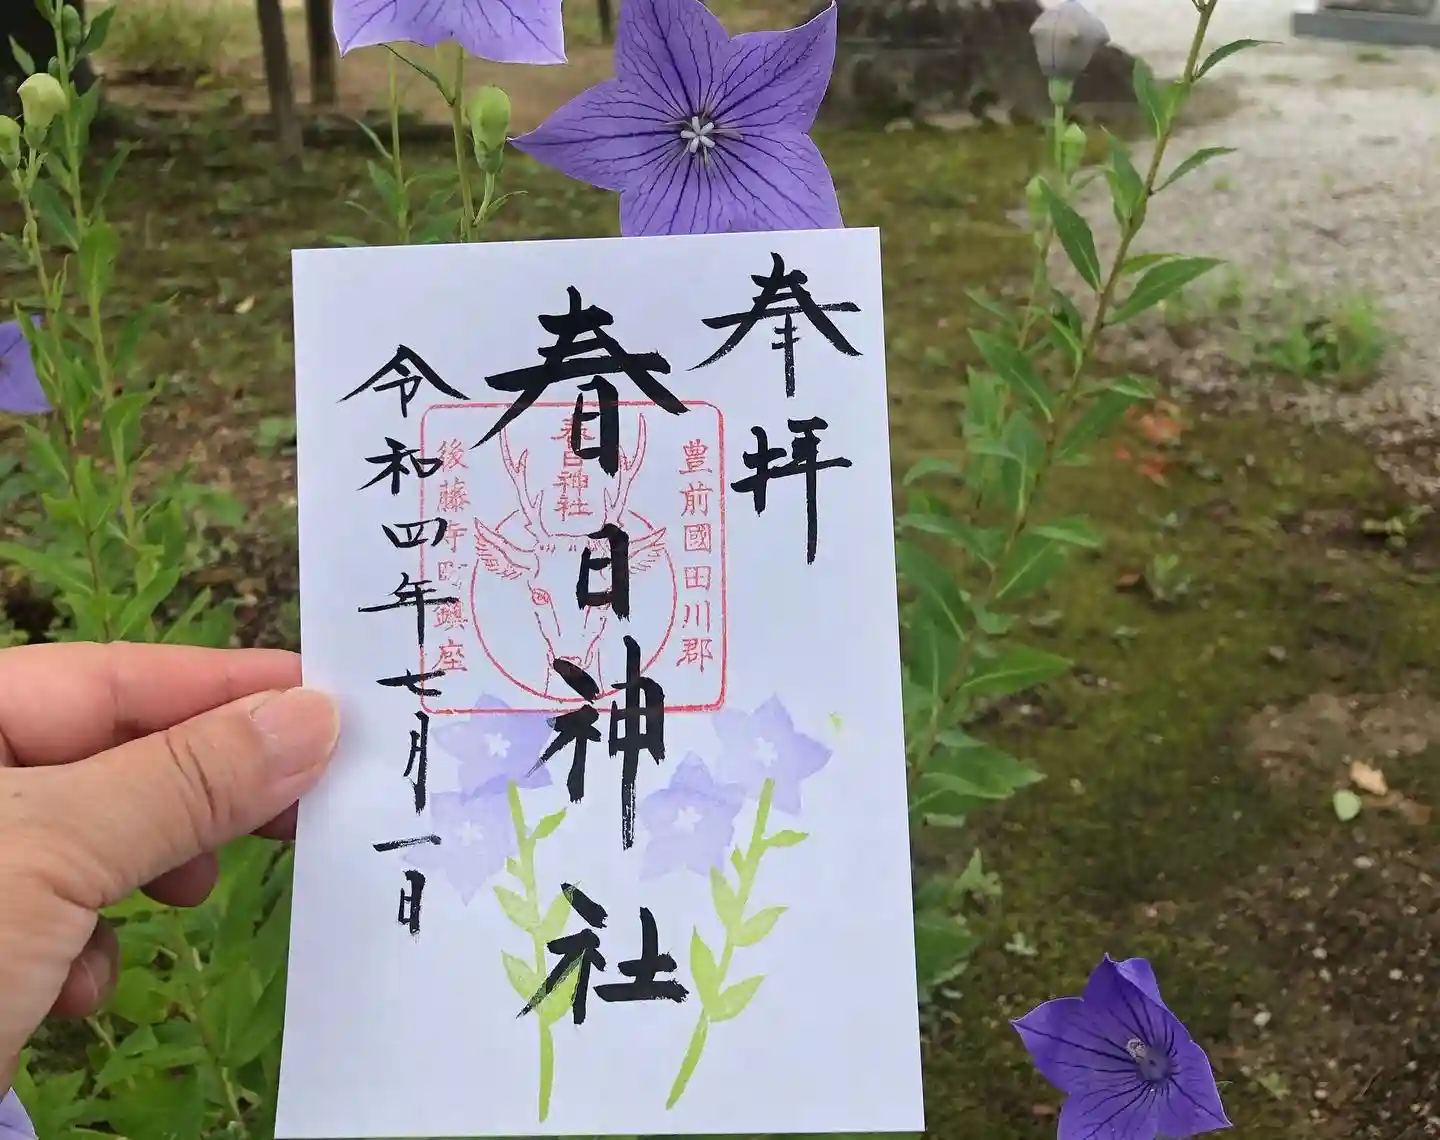 奉拝
豊前國田川郡
春日神社
春日神社
後藤寺町鎮座
令和四年七月一日